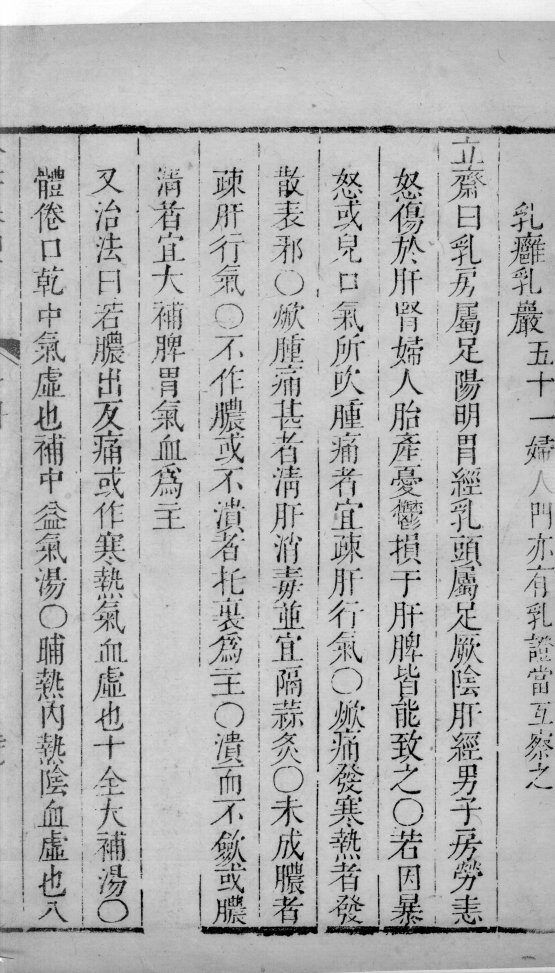 乳癰乳巖五十一婦人門亦有乳證當互察之
立齋曰乳房屬足陽明胃經乳頭屬足厥陰肝經男子房勞恚
怒傷於肝腎婦人胎產憂鬱損于肝脾皆能致之〇若因暴
怒或兒口氣所吹腫痛者宜疎肝行氣〇焮痛發寒熱者發
散表邪〇焮腫痛甚者清肝消毒並宜隔蒜灸〇未成膿者
疎肝行氣〇不作膿或不潰者托裏爲主〇潰而不斂或膿
清者宜大補脾胃氣血爲主
又治法曰若膿出反痛或作寒熱氣血虛也十全大補湯〇
體倦口乾中氣虛也補中益氣湯〇晡熱內熱陰血虛也八